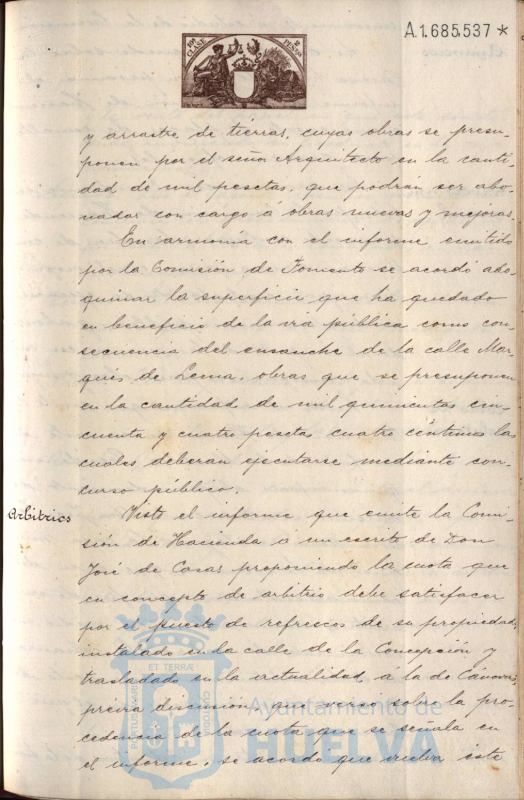 A.1.685.537*
10ª CLASE
2 PESETAS
y arrastre de tierras, cuyas obras se presu-
ponen por el señor Arquitecto en la canti-
dad de mil pesetas, que podrán ser abo-
nadas con cargo á obras nuevas y mejoras.
En armonía con el informe emitido
por la Comisión de Fomento se acordó ado-
quinar la superficie que ha quedado
en beneficio de la via pública como con-
secuencia del ensanche de la calle Mar-
qués de Lema, obras que se presuponen
en la cantidad de mil quinientas cin-
cuenta y cuatro pesetas cuatro céntimos las
cuales deberán ejecutarse mediante con-
curso público.
Arbitrios
Visto el informe que emite la Comi-
sión de Hacienda á un escrito de Don
José de Casas proponiendo la cuota que
en concepto de arbitrio debe satisfacer
por el puesto de refrescos de su propiedad,
instalado en la calle de la Concepción y
trasladado en la actualidad á la de Cánovas,
prévia discusión que versó sobre la pro-
cedencia de la cuota que se señala en
el informe, se acordó que vuelva éste
Ayuntamiento de
HUELVA